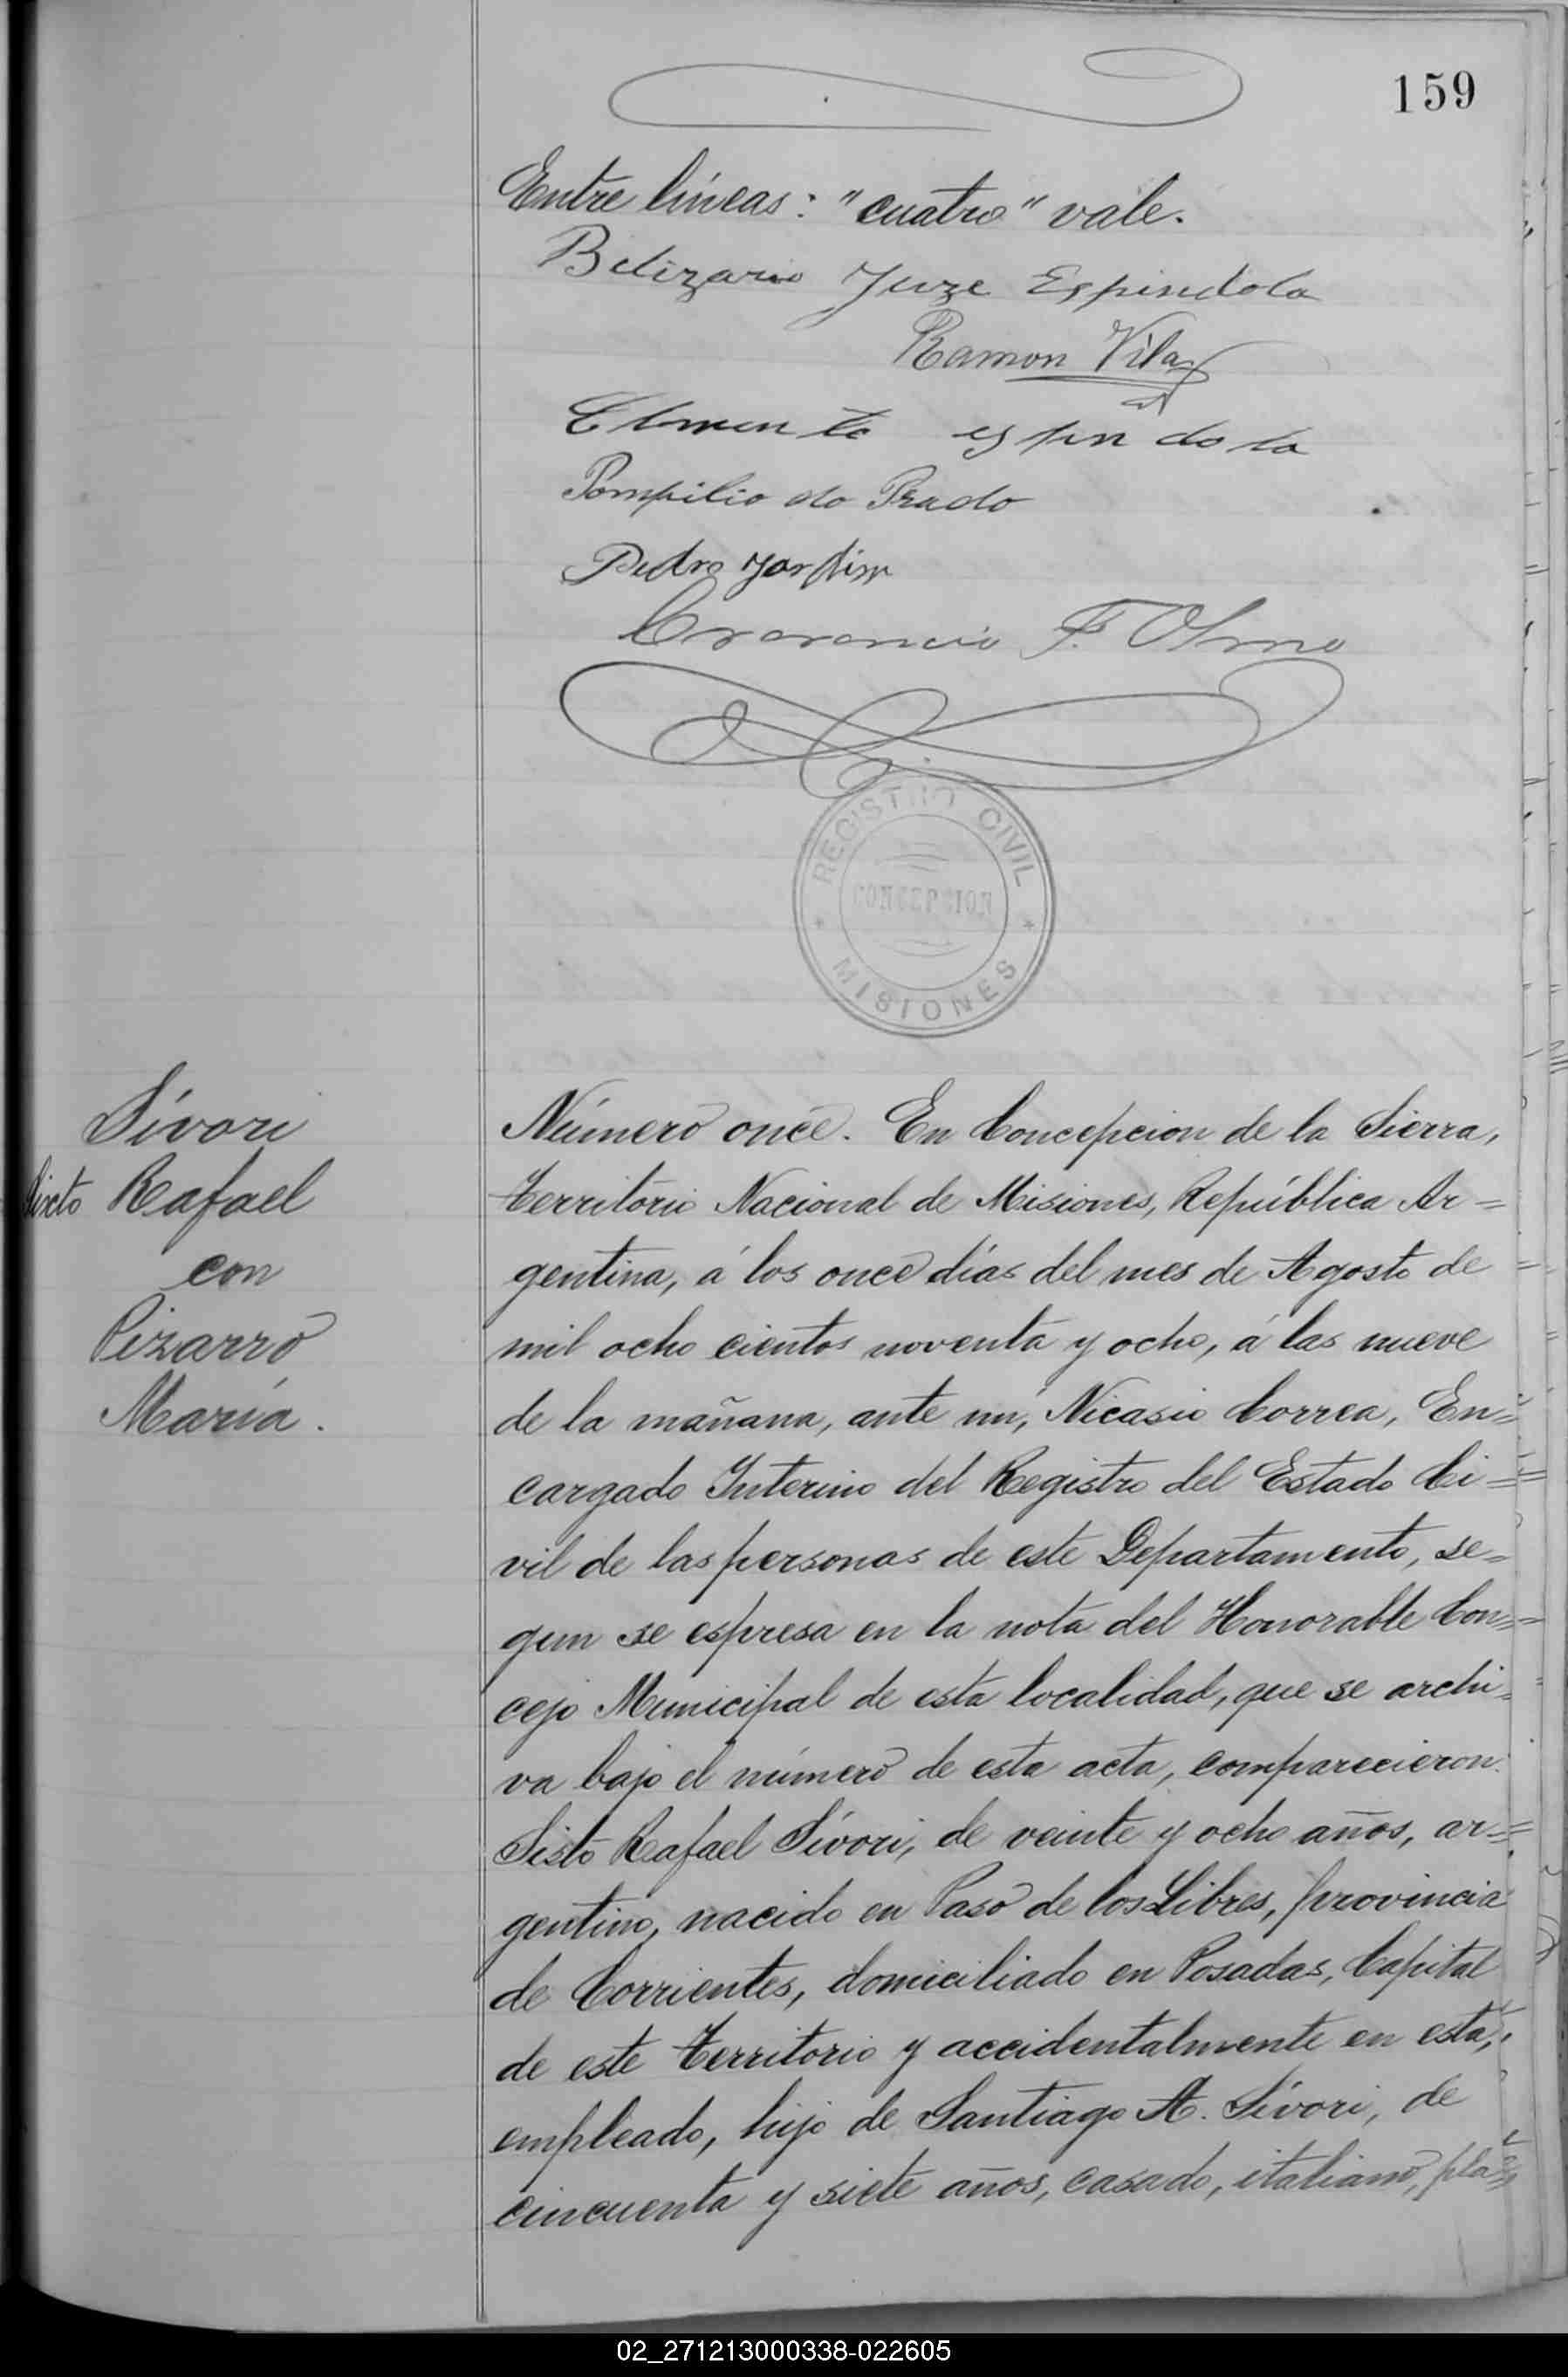 159
Entre líneas: "cuatro" vale.
Belizario Juze Espindola
Ramon Vilar
Clemente espindola
Pompilio do Prado
Pedro
F. Olmo
REGISTRO CIVIL
CONCEPCION
MISIONES
Sívori
Sixto Rafael
con
Pizarro
María.
Número once. En Concepcion de la Sierra,
territorio Nacional de Misiones, República Ar=
gentina, á los once días del mes de Agosto de
mil ocho cientos noventa y ocho, á las nueve
de la mañana, ante mí, Nicasio Correa, En=
cargado Interino del Registro del Estado Ci=
vil de las personas de este Departamento, se=
gun se espresa en la nota del Honorable Con=
cejo Municipal de esta localidad, que se archi=
va bajo el número de esta acta, comparecieron:
Sisto Rafael Sívori, de veinte y ocho años, ar=
gentino, nacido en Paso de los Libres, provincia
de Corrientes, domiciliado en Posadas, Capital
de este territorio y accidentalmente en esta,
empleado, hijo de Santiago A. Sívori, de
cincuenta y siete años, casado, italiano, pla=
02_271213000338-022605